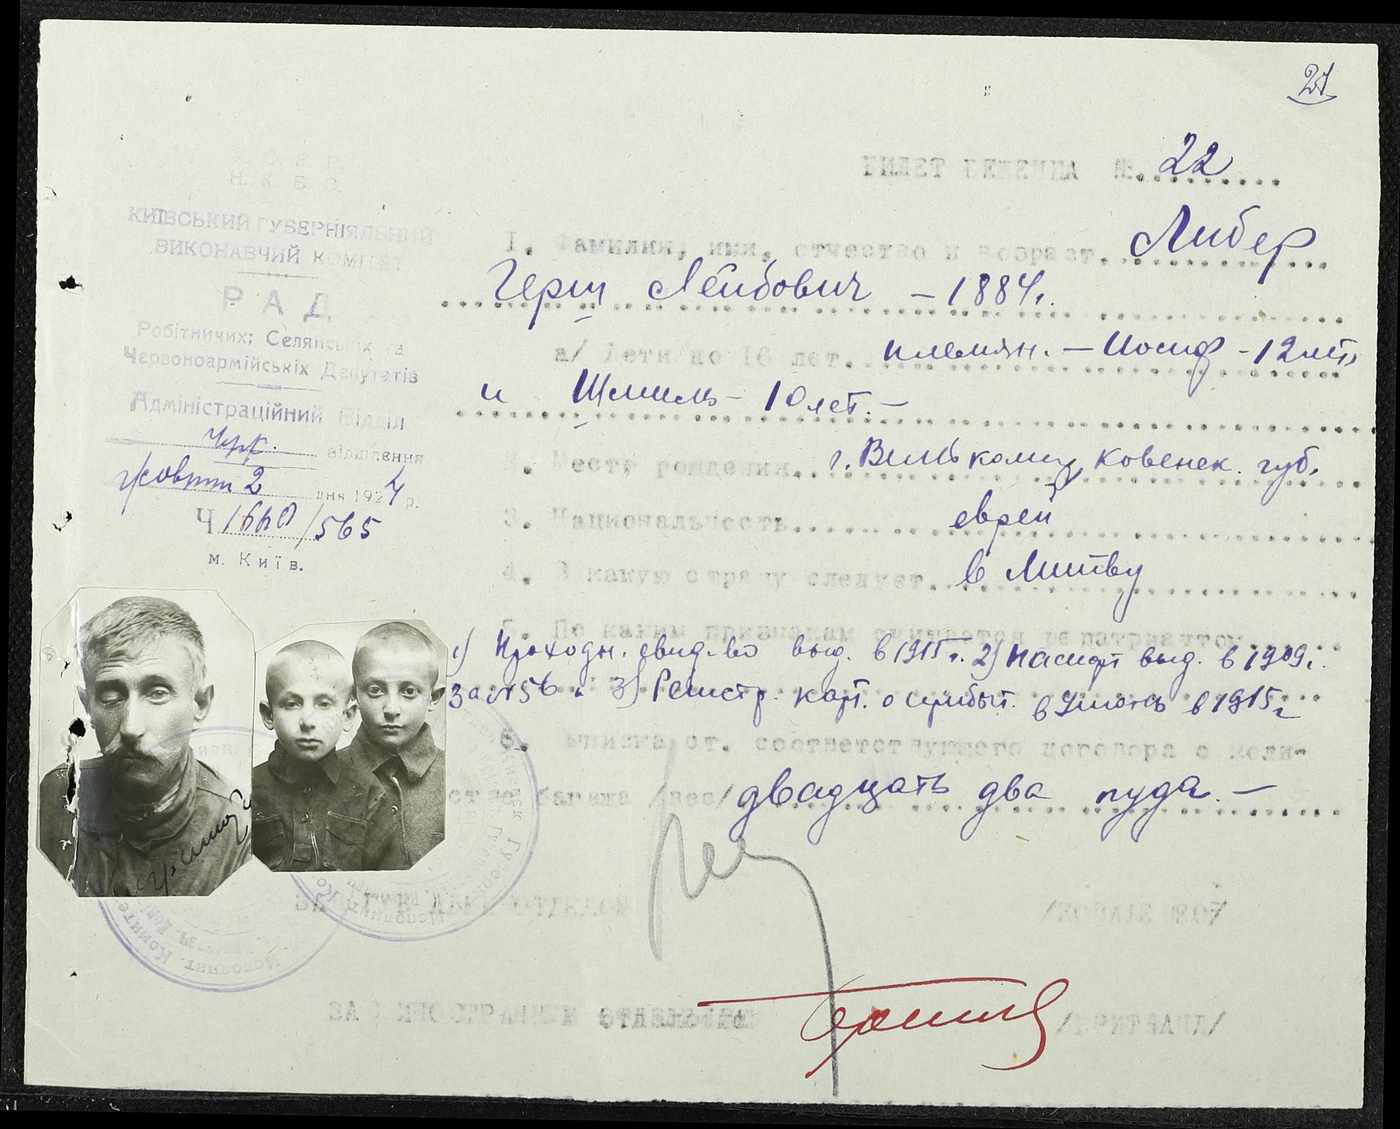 21
БИЛЕТ БЕЖЕНЦА №. 22
Н. К. В. С.
КИЇВСЬКИЙ ГУБЕРНІЯЛЬНИЙ
ВИКОНАВЧИЙ КОМІТЕТ
РАД
Робітничих; Селянських та
Червоноармійськіх Депутатів
Адміністраційний Відділ
відділення
жовтня 2 дня 1924 р.
Ч 1660/565
м. Київ.
1. Фамилия, имя, отчество и возраст. Либер
Герш Лейбович - 1884г.
а/ Дети до 16 лет. племян. - Иосиф - 12 лет,
и Шмиль - 10 лет. -
2. Место рождения. г. Вилькомир Ковенск. губ.
3. Национальность. еврей
4. В какую страну следует. в Литву
5. По каким признакам считается репатриантом
1) Проходн. свид-во выд. в 1915 г. 2) Паспорт выд. в 1909 г.
за № 56 и 3) Регистр. карт. о прибыт. в Умань в 1915 г
6. Выписка от. соответствующего договора о коли-
честве багажа /вес/ двадцать два пуда. -
ЗАВ. АДМ. ОТДЕЛОМ
ЗАВ ИНОСТРАННЫМ отделом